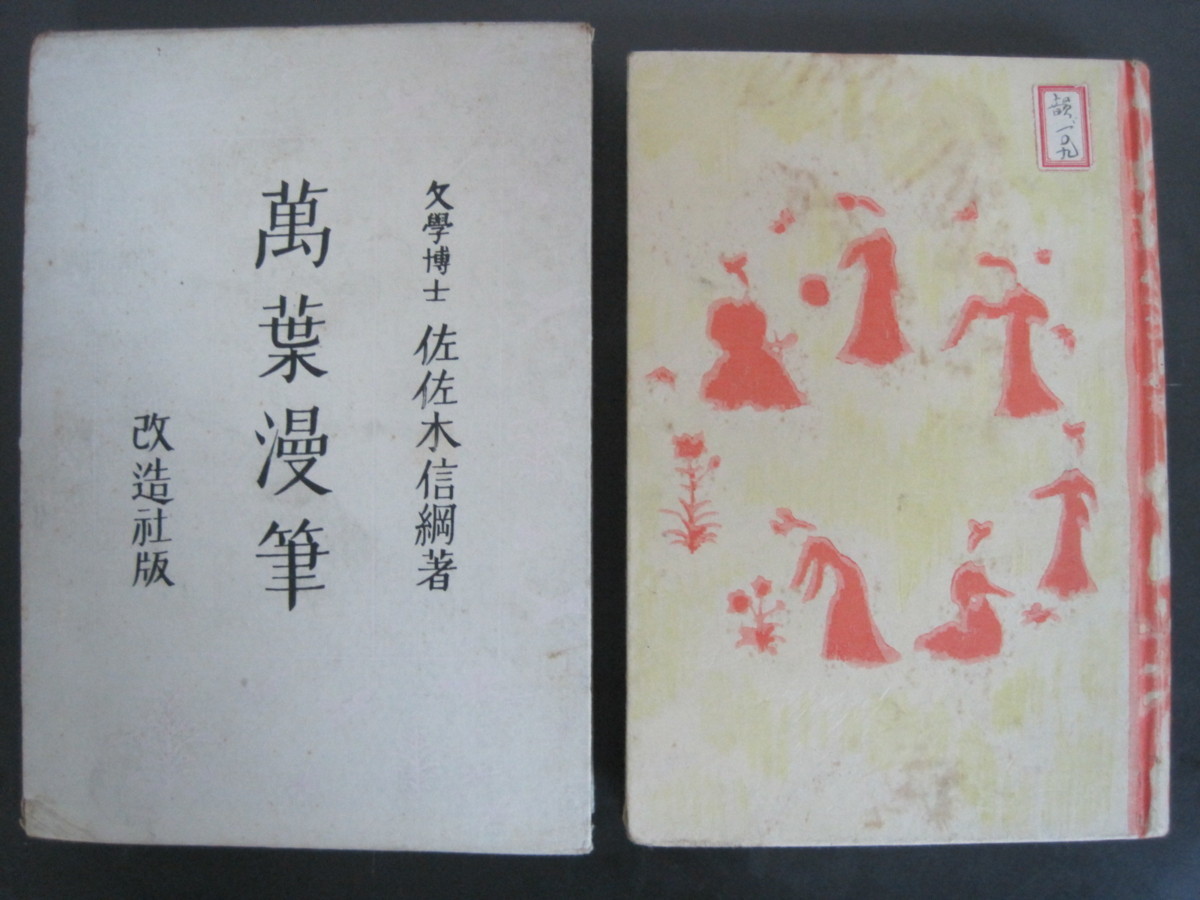 文學博士 佐佐木信綱著
萬葉漫筆
改造社版
一〇九